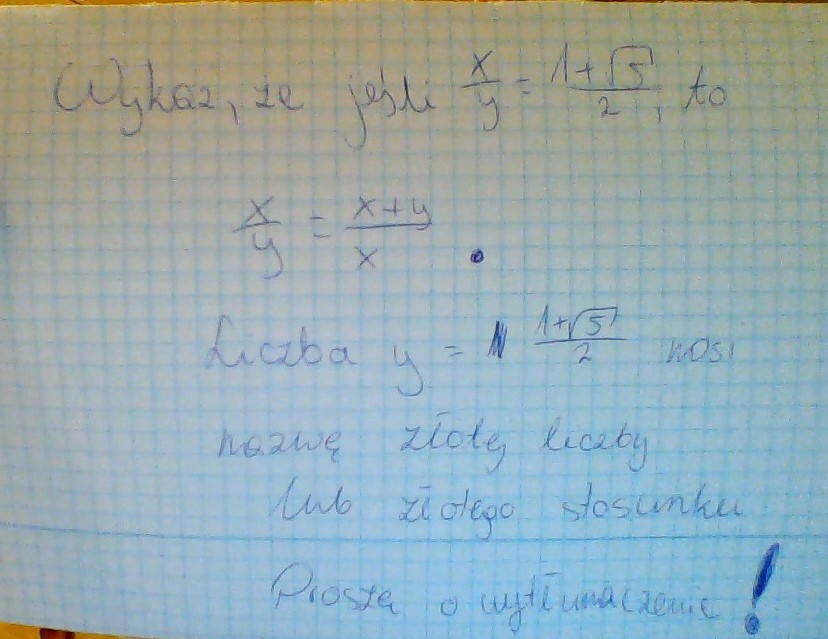 Wykaż, że jeśli x/y = (1+√5)/2, to
x/y = (x+y)/x .
Liczba y = (1+√5)/2 nosi
nazwę złotej liczby
lub złotego stosunku
Proszę o wytłumaczenie!